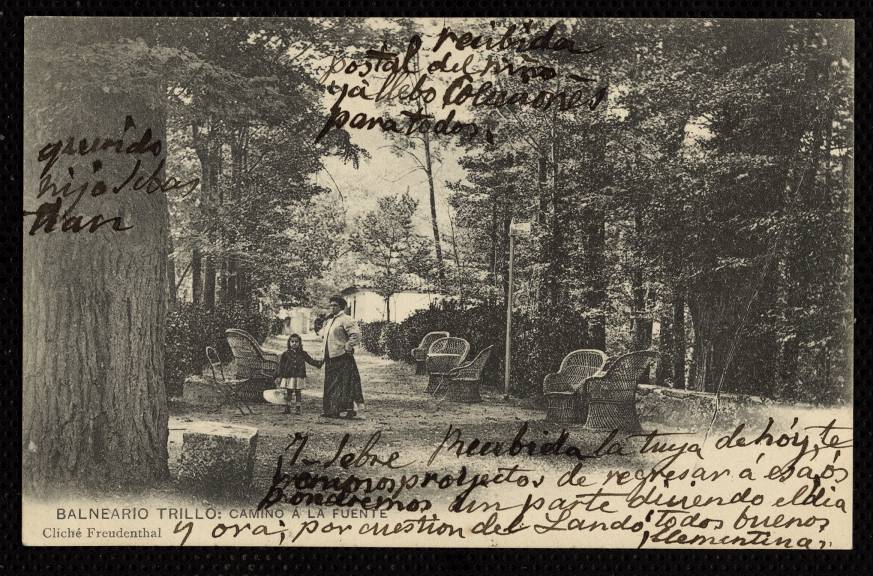 recibida
postal del niño
ya llebo Colecciones
para todos.
querido
hijo Sebas
tian
7 Sebre Recibida la tuya de hóy, te
nemos proyectos de regresar á esa, ós
pondremos un parte diciendo el dia
y ora; por cuestion del Landó todos buenos
Clementina,
BALNEARIO TRILLO: CAMINO Á LA FUENTE
Cliché Freudenthal